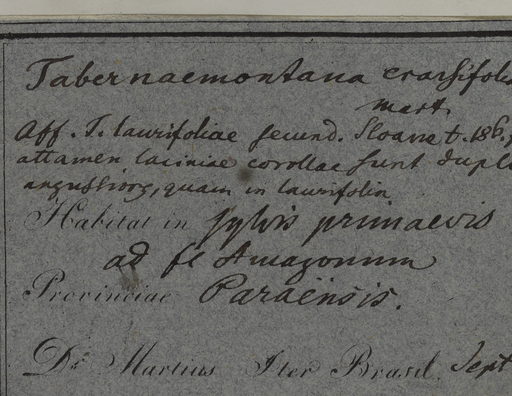 Tabernaemontana crassifolia
Mart.
Aff. T. laurifoliae secund. Sloane t. 186.
attamen laciniae corollae sunt duplo
angustiores, quam in laurifolia
Habitat in sylvis primaevis
ad fl Amazonum
Provinciae Paraënsis.
Dr. Martius Iter Brasil. Sept